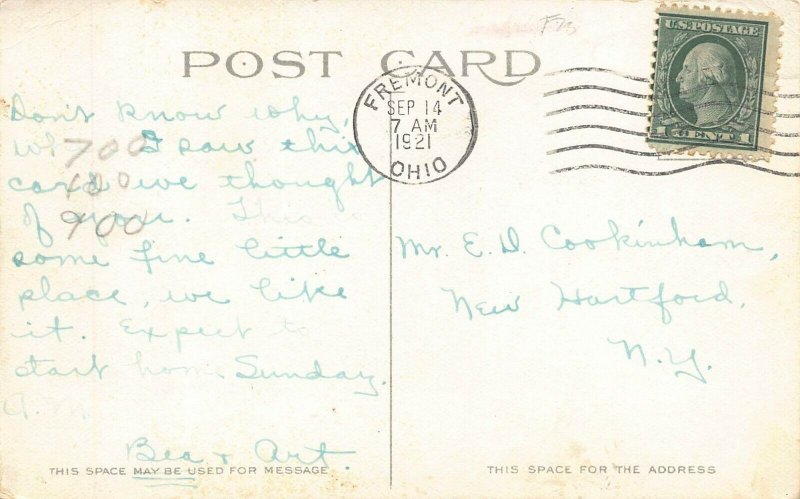 F23
POST CARD
U.S. POSTAGE
1 CENT 1
FREMONT
SEP 14
7 AM
1921
OHIO
Don't know why,
when I saw this
card we thought
of you. This is
some fine little
place, we like
it. Expect to
start home Sunday
A.M.
Bea & Art.
700
100
900
Mr. E. D. Cookinham,
New Hartford,
N.Y.
THIS SPACE MAY BE USED FOR MESSAGE
THIS SPACE FOR THE ADDRESS